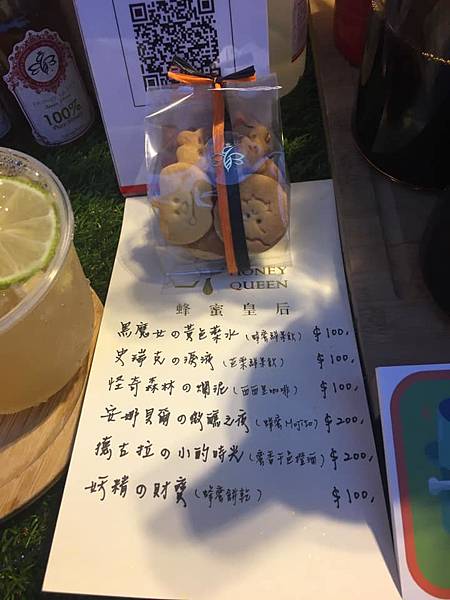 100%
HONEY
QUEEN
蜂蜜皇后
黑魔女の黃色藥水(蜂蜜鮮果飲) $100,
史瑞克の淚液(芭樂鮮果飲) $100,
怪奇森林の爛泥(西西里咖啡) $100,
安娜貝爾の微醺之夜(蜂蜜Mojito) $200,
德古拉の小酌時光(蜜香干邑橙酒) $200,
妖精の財寶(蜂蜜餅乾) $100,